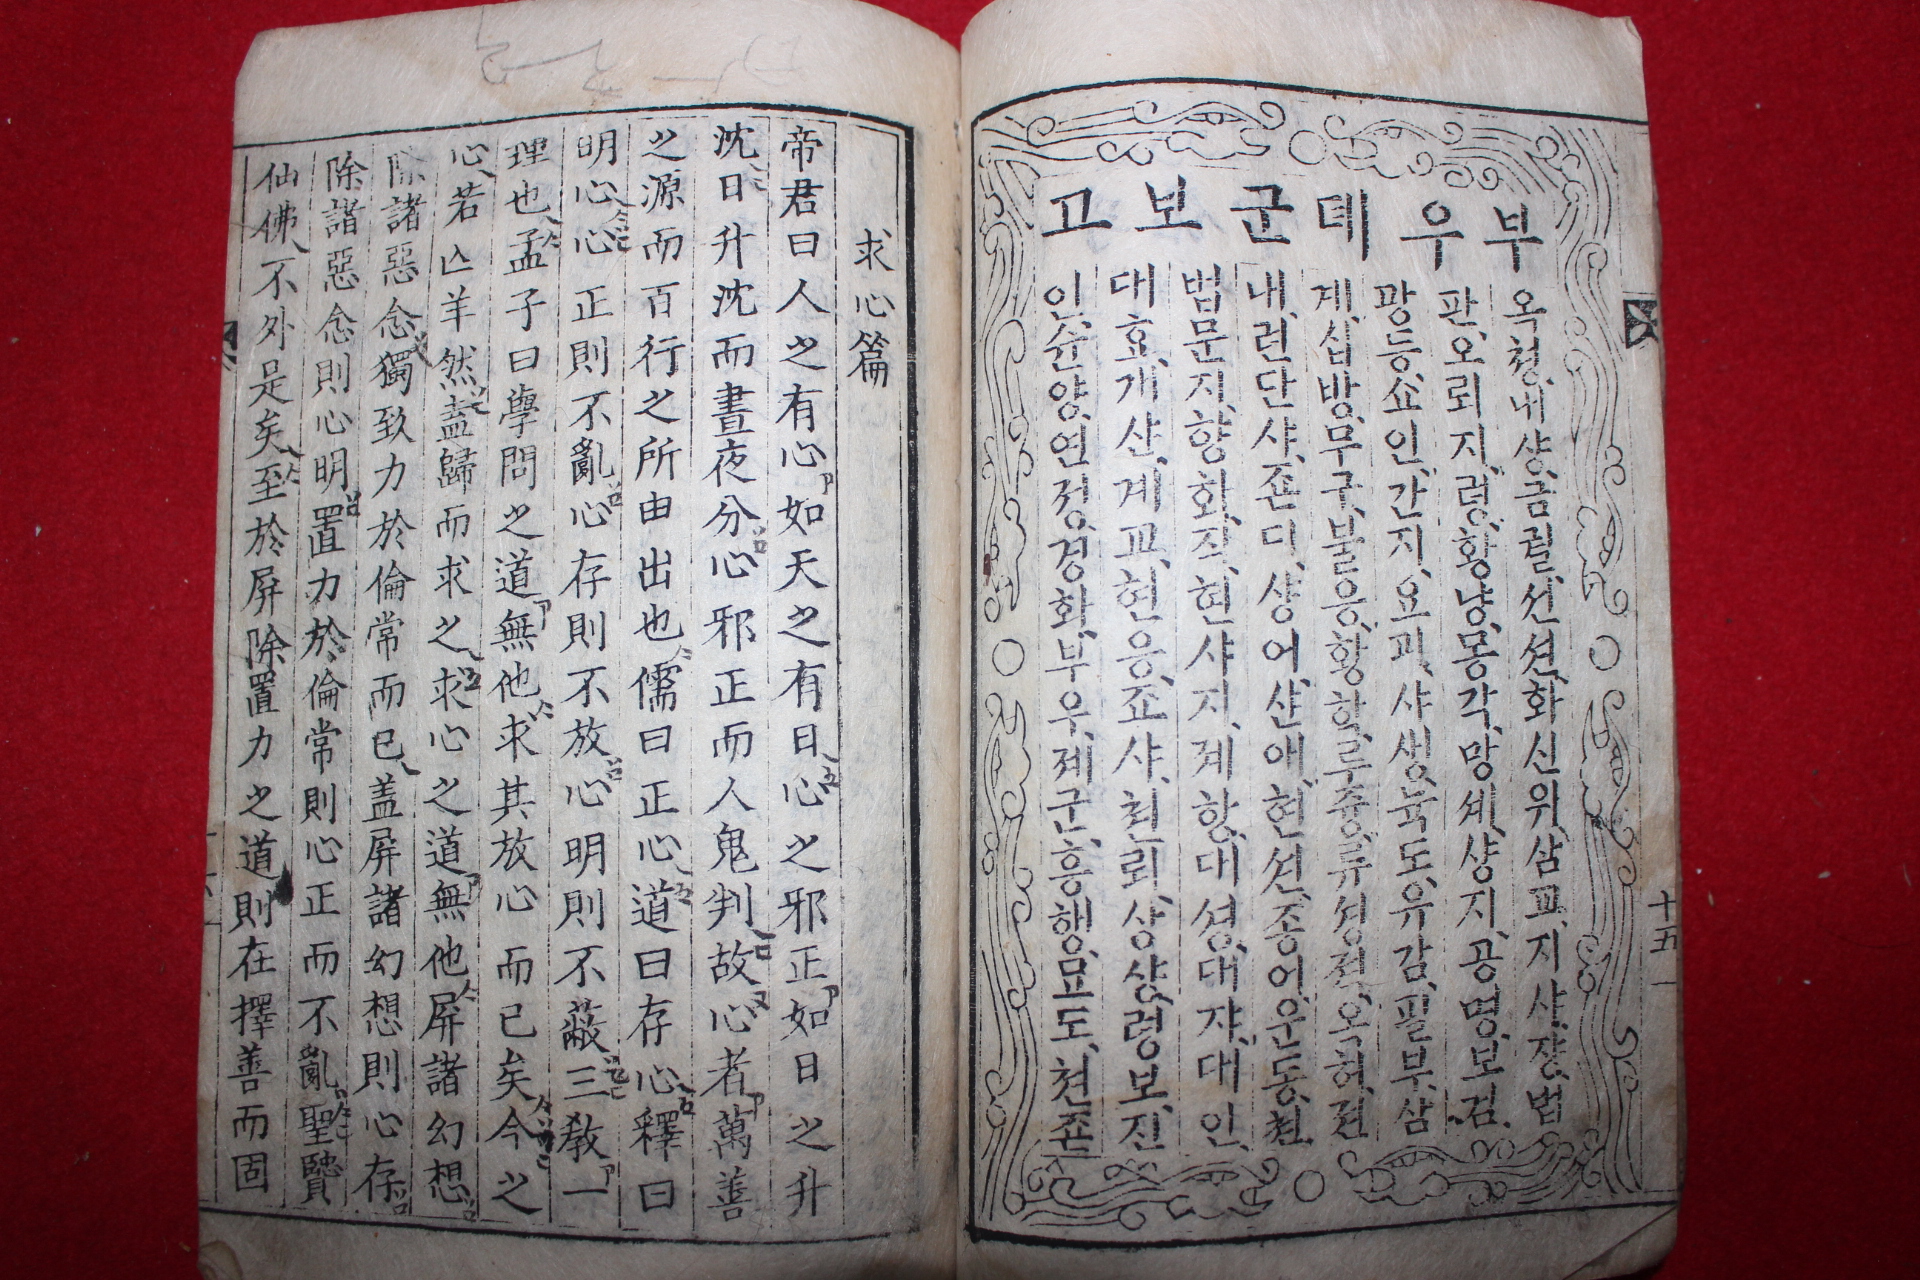 부우뎨군보고
옥쳥,내샹,금궐,션션,화신위,삼교,지샤,쟝,법
판,오뢰지,령,황냥,몽각,망셰,샹지,공명,보검
광등,쇼인,간지,요괴,샤생,뉵도,유감,필부,삼
계,십방,무구,불응,황학,루즁,류셩젼,옥허,젼
내,린단샤,죤디,샹어,산애,현션,죵어,운동,쳔
법문지,향화,직,현샤지,계항,대셩,대쟈,대인
대효,개산,계교,현응,죠샤,쳔뢰,샹샹,령보,진
인,슌양,연졍,경화,부우,졔군,흥행,묘도,쳔죤
十五
求心篇
帝君曰人之有心如天之有日心之邪正如日之升
沈日升沈而晝夜分心邪正而人鬼判故心者萬善
之源而百行之所由出也儒曰正心道曰存心釋曰
明心心正則不亂心存則不放心明則不蔽三敎一
理也孟子曰學問之道無他求其放心而已矣今之
心若亾羊然盍歸而求之求心之道無他屛諸幻想
除諸惡念獨致力於倫常而已盖屛諸幻想則心存
除諸惡念則心明置力於倫常則心正而不亂聖賢
仙佛不外是矣至於屛除置力之道則在擇善而固